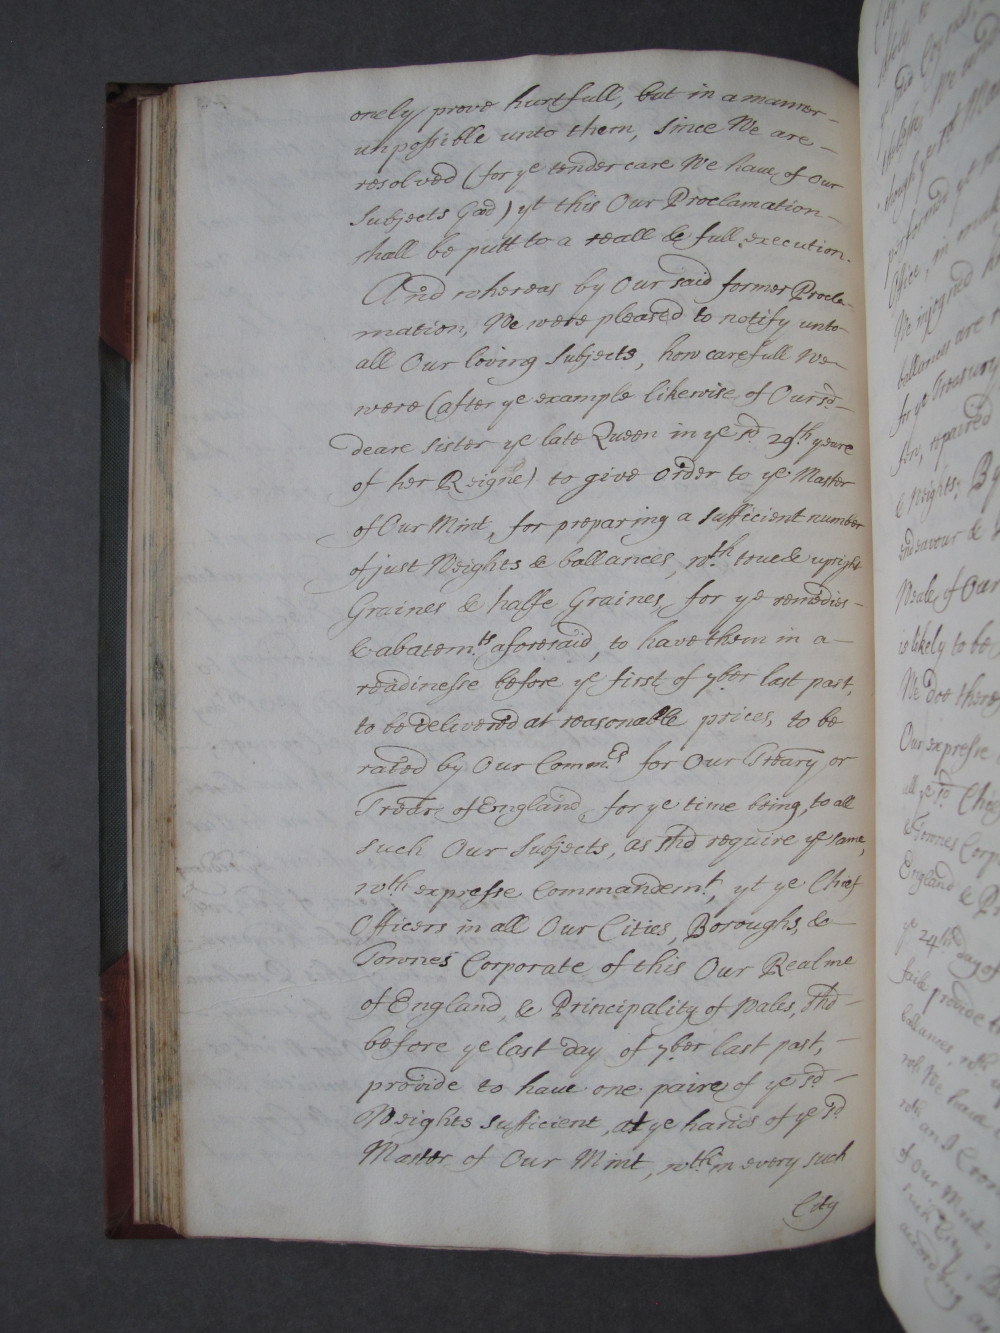 onely prove hurtfull, but in a manner
unpossible unto them, since We are
resolved (for ye tender care We have of Our
Subjects Good) yt this Our Proclamation
shall be putt to a reall & full execution.
And whereas by Our said former Procla-
mation, We were pleased to notify unto
all Our loving Subjects, how carefull We
were (after ye example likewise of Our sd
deare Sister ye late Queen in ye sd 29th yeare
of her Reigne) to give order to ye Master
of Our Mint, for preparing a sufficient number
of just Weights & ballances, wth true & upright
Graines & halfe Graines, for ye remedies
& abatemts aforesaid, to have them in a
readinesse before ye first of 7ber last past,
to be delivered at reasonable prices, to be
rated by Our Commrs for Our Treary or
Trear of England, for ye time being, to all
such Our Subjects, as shd require ye same,
wth expresse Commandemt, yt ye Chief
Officers in all Our Cities, Boroughs, &
Townes Corporate of this Our Realme
of England, & Principality of Wales, shd
before ye last day of 7ber last past,
provide to have one paire of ye sd
Weights sufficient, at ye hands of ye sd
Master of Our Mint, wthin every such
City
is likely to be
Our expresse
England &
ye 24th day of
of Our Mint
such City,
according